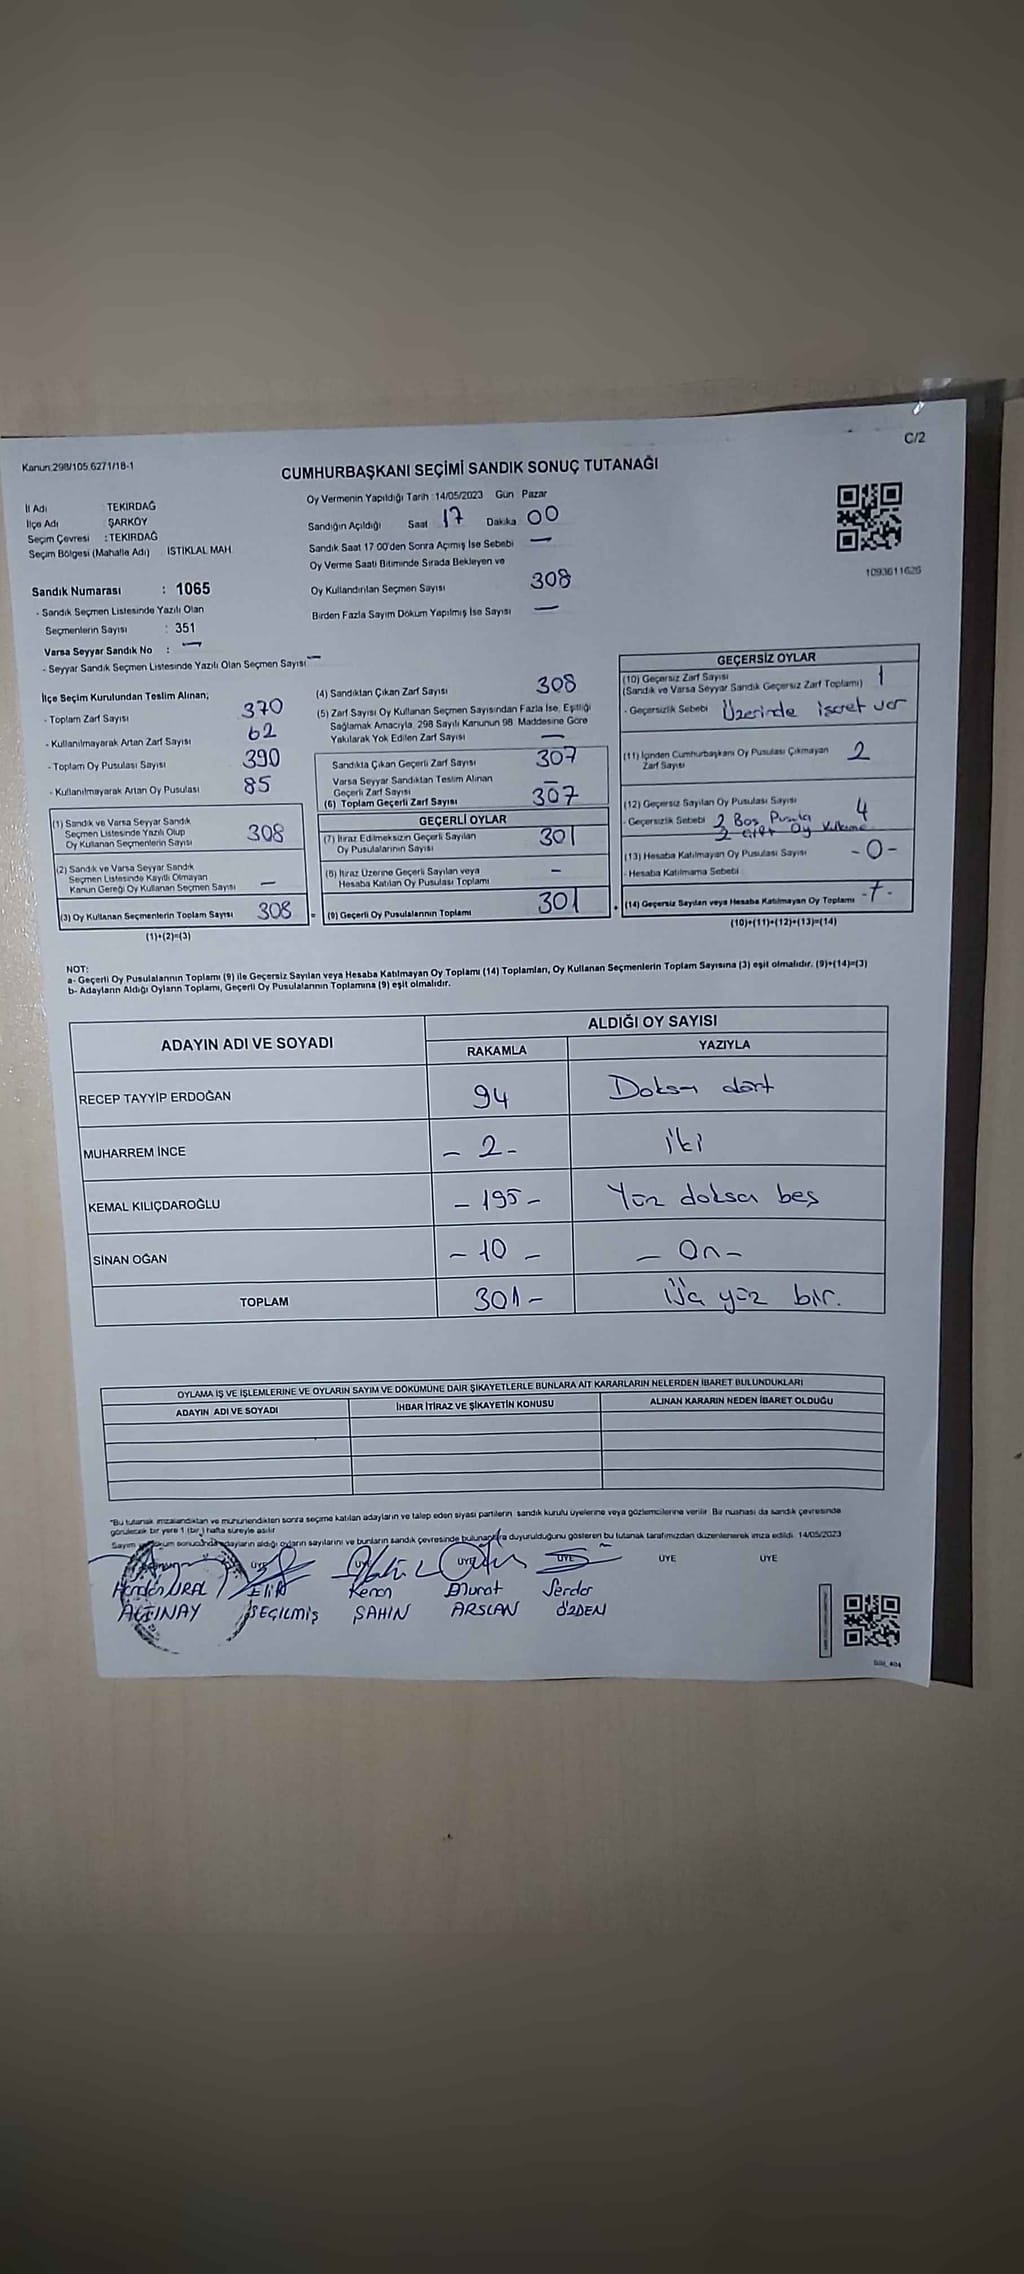 C/2
Kanun.298/105.6271/18-1
CUMHURBAŞKANI SEÇİMİ SANDIK SONUÇ TUTANAĞI
İl Adı : TEKİRDAĞ
İlçe Adı : ŞARKÖY
Seçim Çevresi : TEKİRDAĞ
Seçim Bölgesi (Mahalle Adı) İSTİKLAL MAH.
Sandık Numarası : 1065
- Sandık Seçmen Listesinde Yazılı Olan
Seçmenlerin Sayısı : 351
Varsa Seyyar Sandık No : —
- Seyyar Sandık Seçmen Listesinde Yazılı Olan Seçmen Sayısı —
Oy Vermenin Yapıldığı Tarih :14/05/2023 Gün Pazar
Sandığın Açıldığı Saat 17 Dakika 00
Sandık Saat 17 00'den Sonra Açımış İse Sebebi —
Oy Verme Saati Bitiminde Sırada Bekleyen ve
Oy Kullandırılan Seçmen Sayısı 308
Birden Fazla Sayım Döküm Yapılmış İse Sayısı —
1093611626
İlçe Seçim Kurulundan Teslim Alınan;
- Toplam Zarf Sayısı 370
- Kullanılmayarak Artan Zarf Sayısı 62
- Toplam Oy Pusulası Sayısı 390
- Kullanılmayarak Artan Oy Pusulası 85
(1) Sandık ve Varsa Seyyar Sandık
Seçmen Listesinde Yazılı Olup
Oy Kullanan Seçmenlerin Sayısı 308
(2) Sandık ve Varsa Seyyar Sandık
Seçmen Listesinde Kayıtlı Olmayan
Kanun Gereği Oy Kullanan Seçmen Sayısı —
(3) Oy Kullanan Seçmenlerin Toplam Sayısı 308 =
(1)+(2)=(3)
(4) Sandıktan Çıkan Zarf Sayısı 308
(5) Zarf Sayısı Oy Kullanan Seçmen Sayısından Fazla İse, Eşitliği
Sağlamak Amacıyla, 298 Sayılı Kanunun 98. Maddesine Göre
Yakılarak Yok Edilen Zarf Sayısı —
Sandıkta Çıkan Geçerli Zarf Sayısı 307
Varsa Seyyar Sandıktan Teslim Alınan
Geçerli Zarf Sayısı —
(6) Toplam Geçerli Zarf Sayısı 307
GEÇERLİ OYLAR
(7) İtiraz Edilmeksizin Geçerli Sayılan
Oy Pusulalarının Sayısı 301
(8) İtiraz Üzerine Geçerli Sayılan veya
Hesaba Katılan Oy Pusulası Toplamı —
(9) Geçerli Oy Pusulalarının Toplamı 301
GEÇERSİZ OYLAR
(10) Geçersiz Zarf Sayısı
(Sandık ve Varsa Seyyar Sandık Geçersiz Zarf Toplamı) 1
- Geçersizlik Sebebi Üzerinde işaret var
(11) İçinden Cumhurbaşkanı Oy Pusulası Çıkmayan
Zarf Sayısı 2
(12) Geçersiz Sayılan Oy Pusulası Sayısı 4
- Geçersizlik Sebebi 2 Boş Pusula
2 Çift Oy Kullanma
(13) Hesaba Katılmayan Oy Pusulası Sayısı -0-
- Hesaba Katılmama Sebebi
(14) Geçersiz Sayılan veya Hesaba Katılmayan Oy Toplamı -7-
(10)+(11)+(12)+(13)=(14)
NOT:
a- Geçerli Oy Pusulalarının Toplamı (9) ile Geçersiz Sayılan veya Hesaba Katılmayan Oy Toplamı (14) Toplamları, Oy Kullanan Seçmenlerin Toplam Sayısına (3) eşit olmalıdır. (9)+(14)=(3)
b- Adayların Aldığı Oyların Toplamı, Geçerli Oy Pusulalarının Toplamına (9) eşit olmalıdır.
ADAYIN ADI VE SOYADI
ALDIĞI OY SAYISI
RAKAMLA YAZIYLA
RECEP TAYYİP ERDOĞAN 94 Doksan dört
MUHARREM İNCE - 2 - iki
KEMAL KILIÇDAROĞLU - 195 - Yüz doksan beş
SİNAN OĞAN - 10 - - On -
TOPLAM 301 - Üç yüz bir.
OYLAMA İŞ VE İŞLEMLERİNE VE OYLARIN SAYIM VE DÖKÜMÜNE DAİR ŞİKAYETLERLE BUNLARA AİT KARARLARIN NELERDEN İBARET BULUNDUKLARI
ADAYIN ADI VE SOYADI İHBAR İTİRAZ VE ŞİKAYETİN KONUSU ALINAN KARARIN NEDEN İBARET OLDUĞU
*Bu tutanak imzalandıktan ve mühürlendikten sonra seçime katılan adayların ve talep eden siyasi partilerin sandık kurulu üyelerine veya gözlemcilerine verilir. Bir nüshası da sandık çevresinde
görülecek bir yere 1 (bir) hafta süreyle asılır
Sayım ve döküm sonucunda adayların aldığı oyların sayılarını ve bunların sandık çevresinde bulunanlara duyurulduğunu gösteren bu tutanak tarafımızdan düzenlenerek imza edildi. 14/05/2023
ÜYE ÜYE ÜYE ÜYE ÜYE ÜYE
URAL Elif Kenan Murat Serdar
ALTINAY SEÇİLMİŞ ŞAHİN ARSLAN ÖZDEN